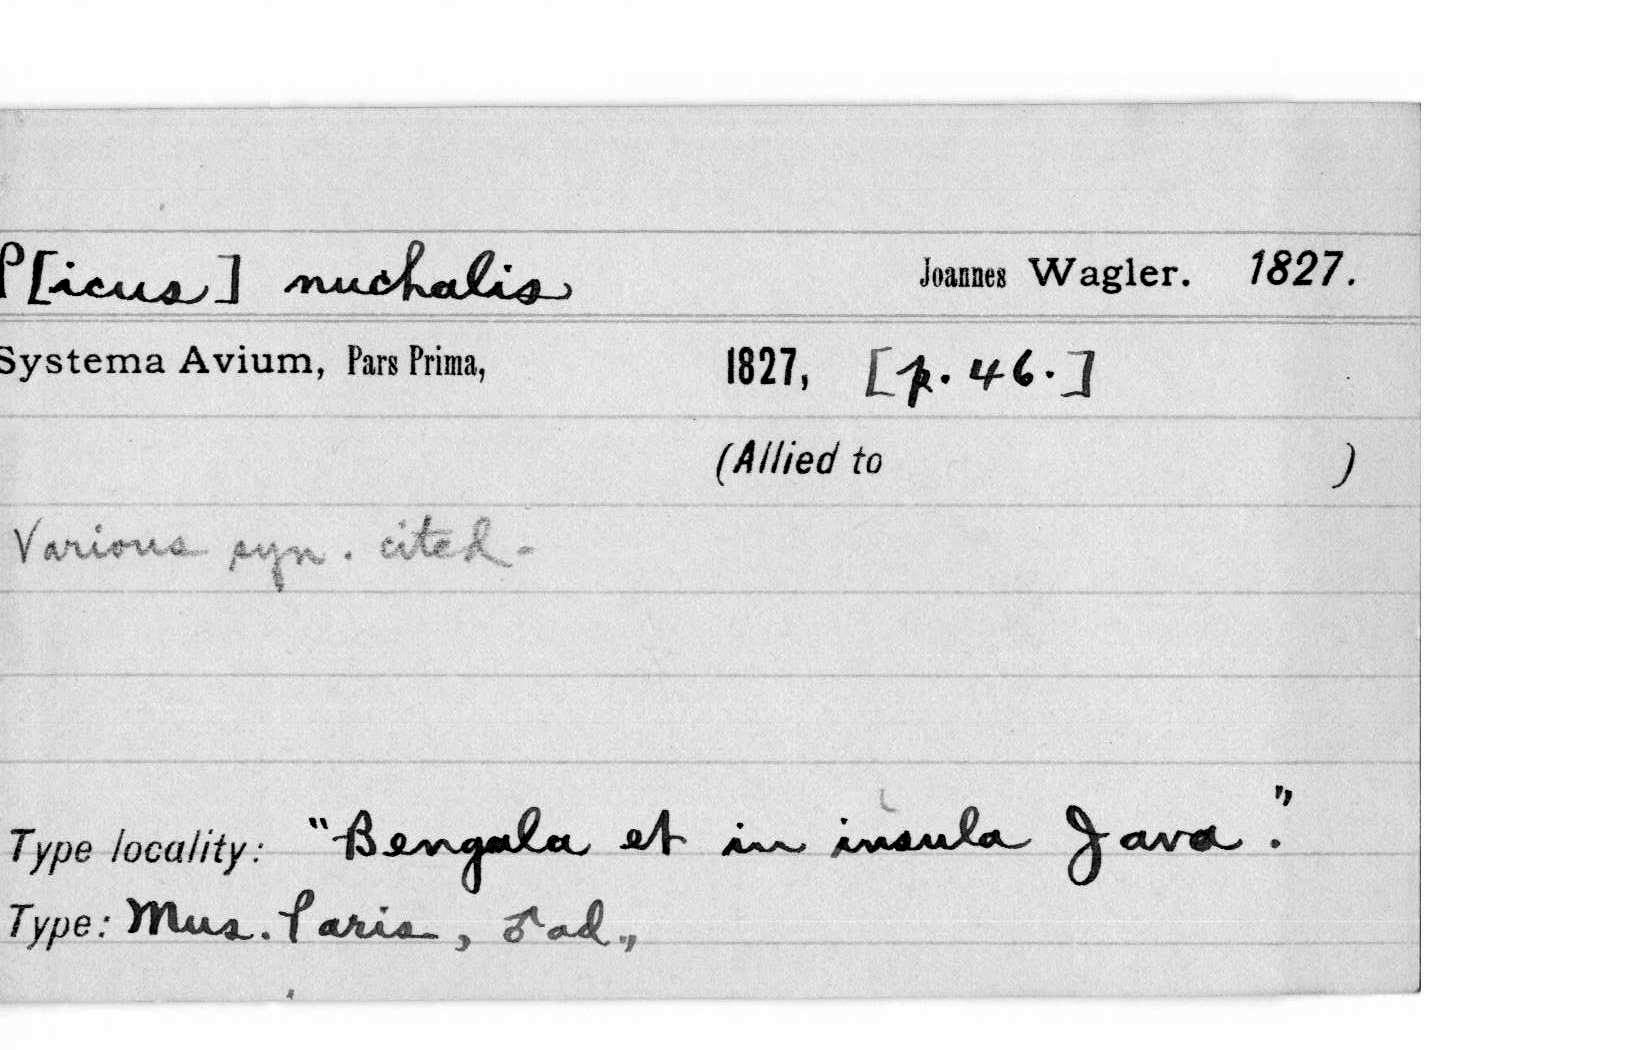 P[icus] nuchalis Joannes Wagler. 1827.
Systema Avium, Pars Prima, 1827, [p. 46.]
(Allied to )
Various syn. cited-
Type locality: "Bengala et in insula Java."
Type: Mus. Paris, ♂ ad.,